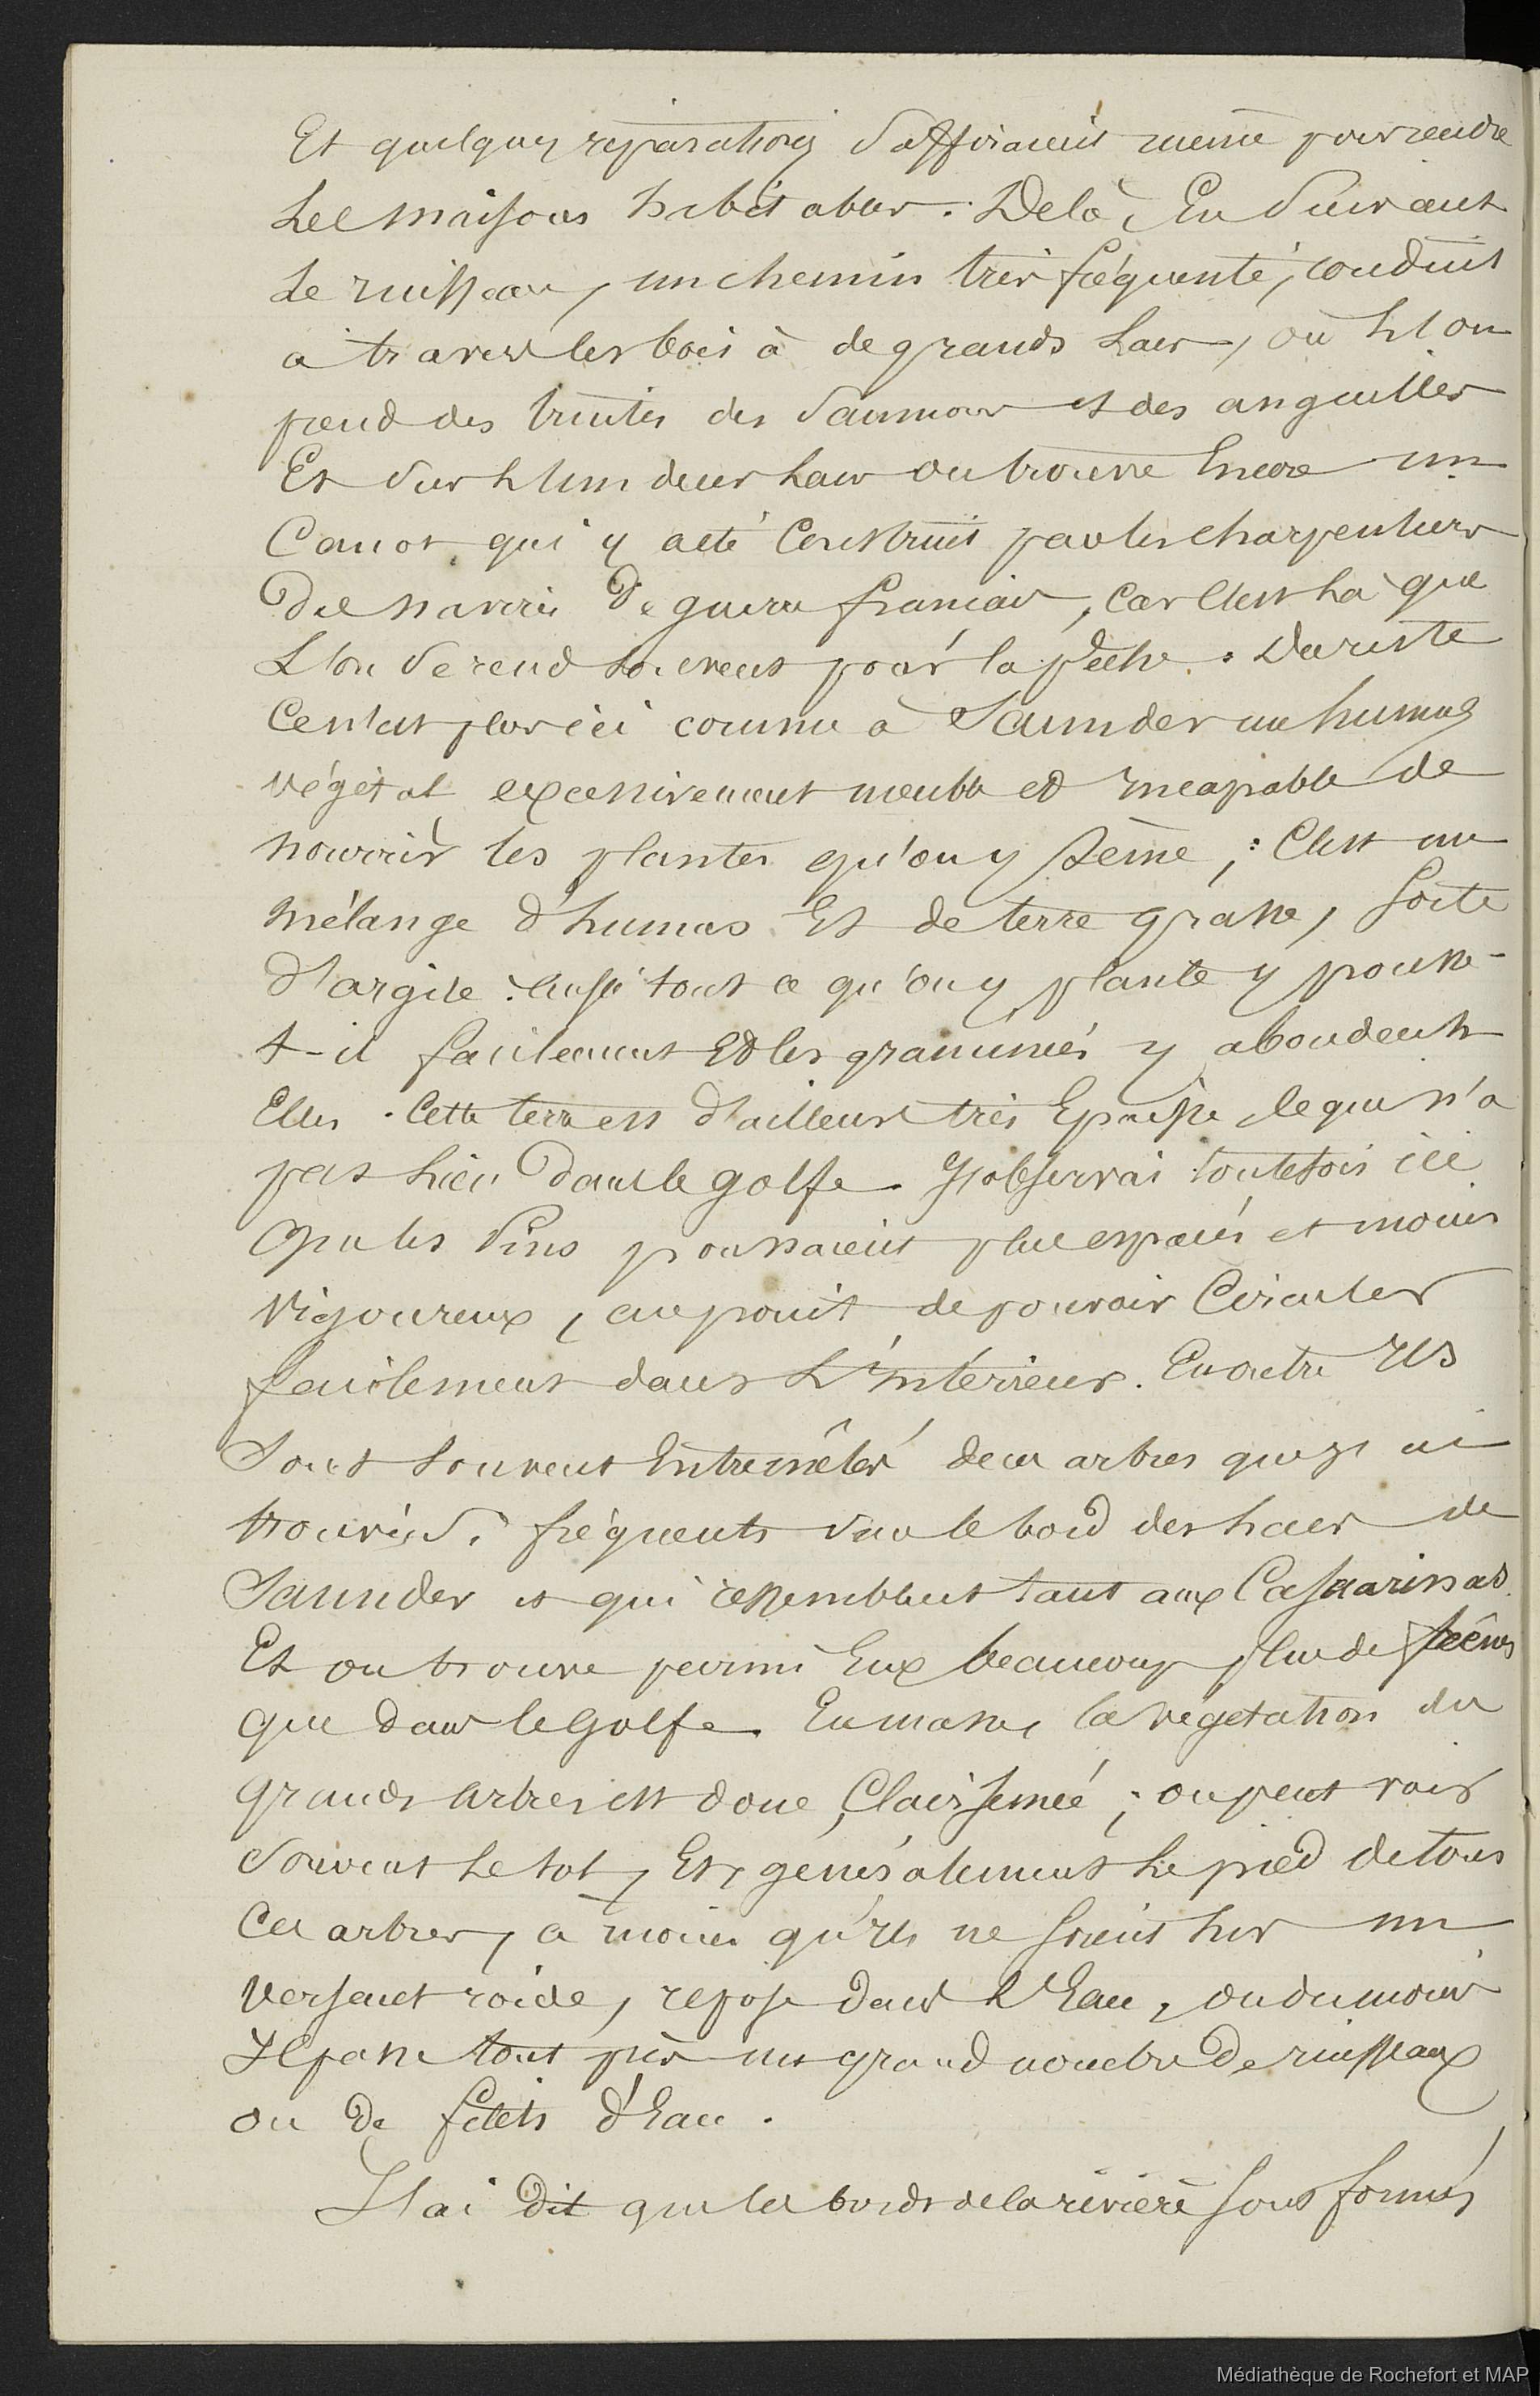 Et quelques réparations suffiraient même pour rendre
les maisons habitables. De là, en suivant
le ruisseau, un chemin très fréquenté, conduit
à travers les bois à de grands lacs, où l'on
prend des truites des saumons et des anguilles
Et sur l'un deux lacs on trouve encore un
Canot qui y a été construit par les charpentiers
des navires de guerre français, car c'est là que
l'on se rend souvent pour la pêche. Du reste
ce n'est plus ici comme à Saunder un humus
végétal excessivement meuble et incapable de
nourrir les plantes qu'on y sème ; C'est un
mélange d'humus Et de terre grasse, sorte
d'argile : aussi tout ce qu'on y plante y pousse-
t-il facilement Et les graminées y abondent
Elles. Cette terre est d'ailleurs très épaisse, ce qui n'a
pas lieu dans le golfe. J'observai toutefois ici
que les pins poussaient plus espacés et moins
vigoureux, au point de pouvoir circuler
facilement dans l'intérieur. En outre ils
sont souvent entremêlés de ces arbres que j'ai
trouvés si fréquents sur le bord des lacs de
Saunder et qui ressemblent tant aux Casuarinas.
Et on trouve parmi eux beaucoup plus de frênes
que dans le golfe. En masse, la végétation des
grands arbres est donc clairsemée ; on peut voir
souvent le sol, Et, généralement le pied de tous
ces arbres, à moins qu'ils ne soient sur un
versant roide, repose dans l'Eau, ou du moins
Il passe tout près un grand nombre de ruisseaux
ou de filets d'Eau.
J'ai dit que les bords de la rivière sont formés
Médiathèque de Rochefort et MAP